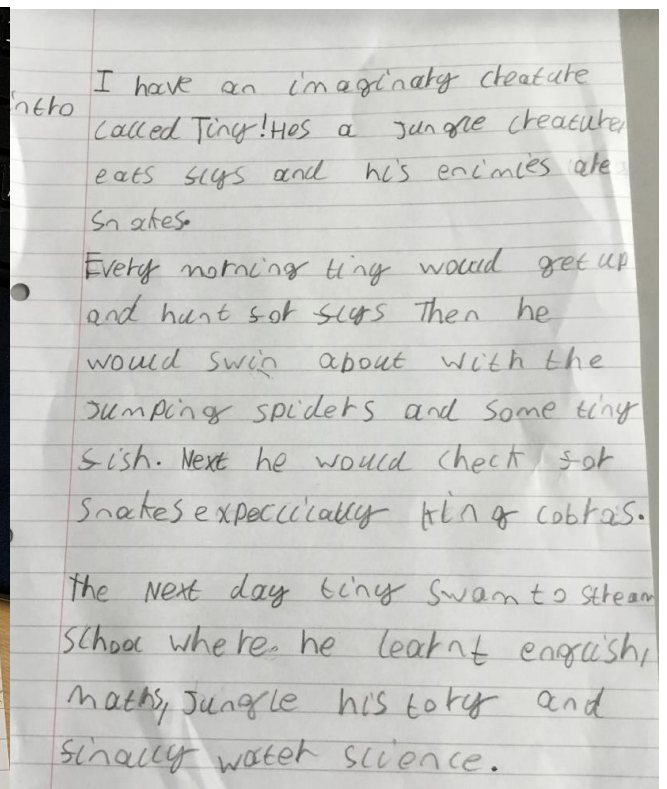 I have an imaginary creature
intro
called Tiny! Hes a jungle creature,
eats flys and his enimies are
snakes.
Every morning tiny would get up
and hunt for flys Then he
would swin about with the
Jumping spiders and some tiny
fish. Next he would check for
snakes expeccically king cobras.
The Next day tiny swam to stream
school where he learnt english,
maths, Jungle history and
finally water science.